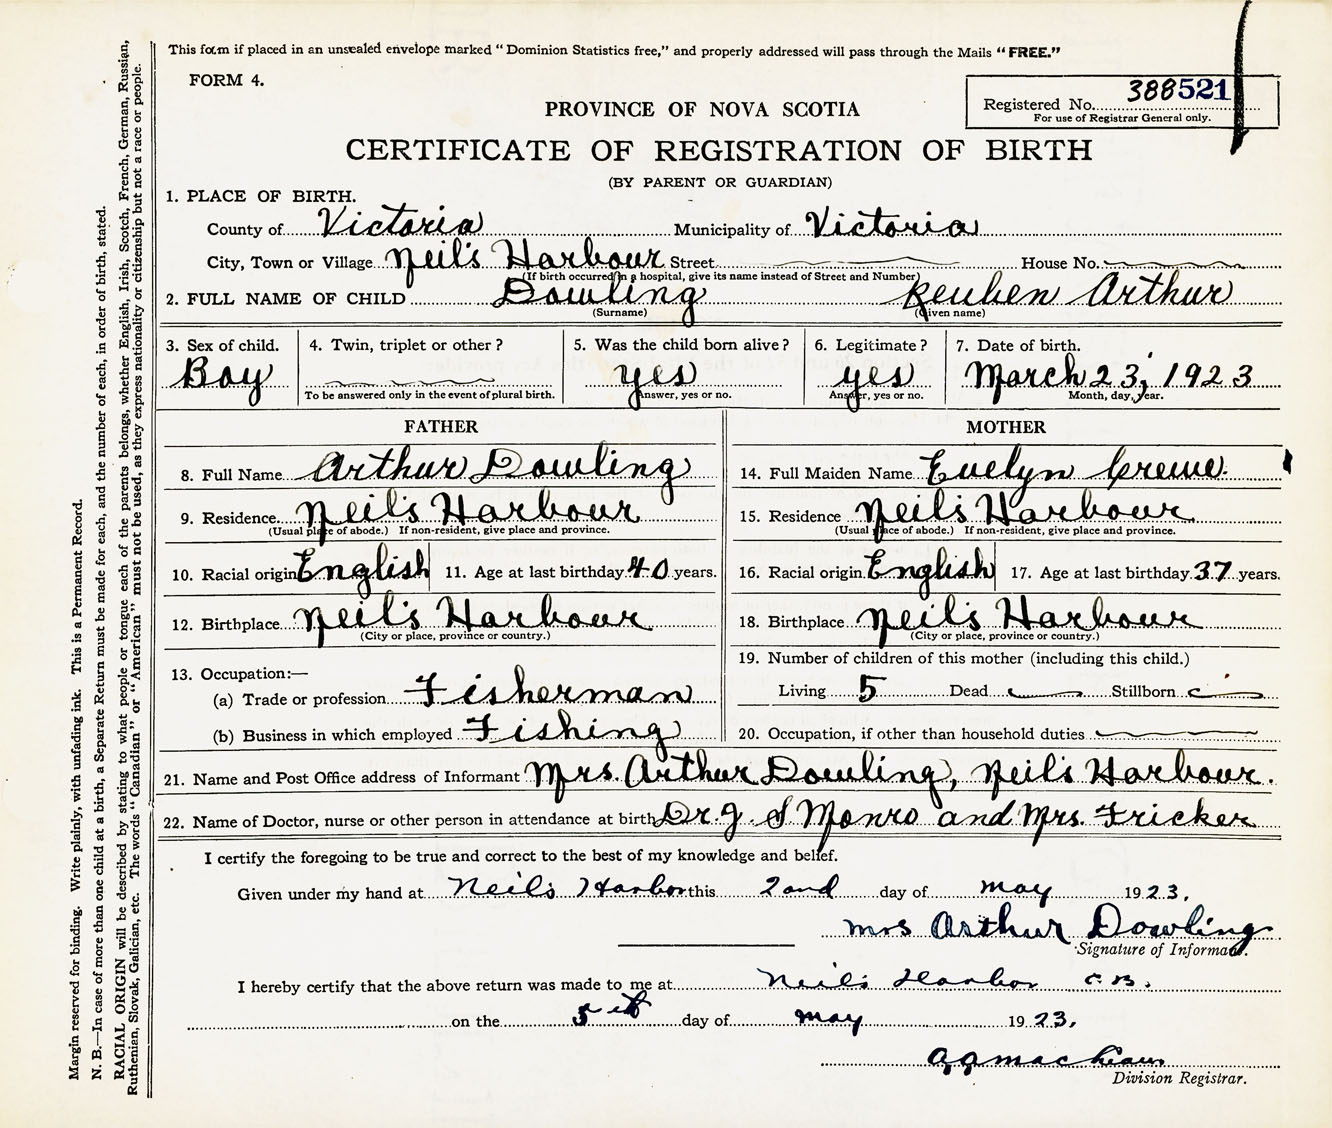 This form if placed in an unsealed envelope marked "Dominion Statistics free," and properly addressed will pass through the Mails "FREE."
FORM 4.
Registered No. 388521
For use of Registrar General only.
PROVINCE OF NOVA SCOTIA
CERTIFICATE OF REGISTRATION OF BIRTH
(BY PARENT OR GUARDIAN)
1. PLACE OF BIRTH.
County of Victoria Municipality of Victoria
City, Town or Village Neil's Harbour Street House No.
(If birth occurred in a hospital, give its name instead of Street and Number)
2. FULL NAME OF CHILD Dowling Reuben Arthur
(Surname) (Given name)
3. Sex of child. 4. Twin, triplet or other? 5. Was the child born alive? 6. Legitimate? 7. Date of birth.
Boy yes yes March 23, 1923
To be answered only in the event of plural birth. Answer, yes or no. Answer, yes or no. Month, day, year.
FATHER MOTHER
8. Full Name Arthur Dowling 14. Full Maiden Name Evelyn Crewe.
9. Residence Neil's Harbour 15. Residence Neil's Harbour
(Usual place of abode.) If non-resident, give place and province. (Usual place of abode.) If non-resident, give place and province.
10. Racial origin English 11. Age at last birthday 40 years. 16. Racial origin English 17. Age at last birthday 37 years.
12. Birthplace Neil's Harbour 18. Birthplace Neil's Harbour
(City or place, province or country.) (City or place, province or country.)
13. Occupation:— 19. Number of children of this mother (including this child.)
(a) Trade or profession Fisherman Living 5 Dead Stillborn
(b) Business in which employed Fishing 20. Occupation, if other than household duties
21. Name and Post Office address of Informant Mrs. Arthur Dowling, Neil's Harbour.
22. Name of Doctor, nurse or other person in attendance at birth Dr. J. S Monro and Mrs. Fricker
I certify the foregoing to be true and correct to the best of my knowledge and belief.
Given under my hand at Neil's Harbor this 2and day of may 1923.
mrs Arthur Dowling
Signature of Informant.
I hereby certify that the above return was made to me at Neil's Harbor C.B.
on the 5th day of may 1923.
Division Registrar.
Margin reserved for binding. Write plainly, with unfading ink. This is a Permanent Record.
N. B.—In case of more than one child at a birth, a Separate Return must be made for each, and the number of each, in order of birth, stated.
RACIAL ORIGIN will be described by stating to what people or tongue each of the parents belongs, whether English, Irish, Scotch, French, German, Russian,
Ruthenian, Slovak, Galician, etc. The words "Canadian" or "American" must not be used, as they express nationality or citizenship but not a race or people.